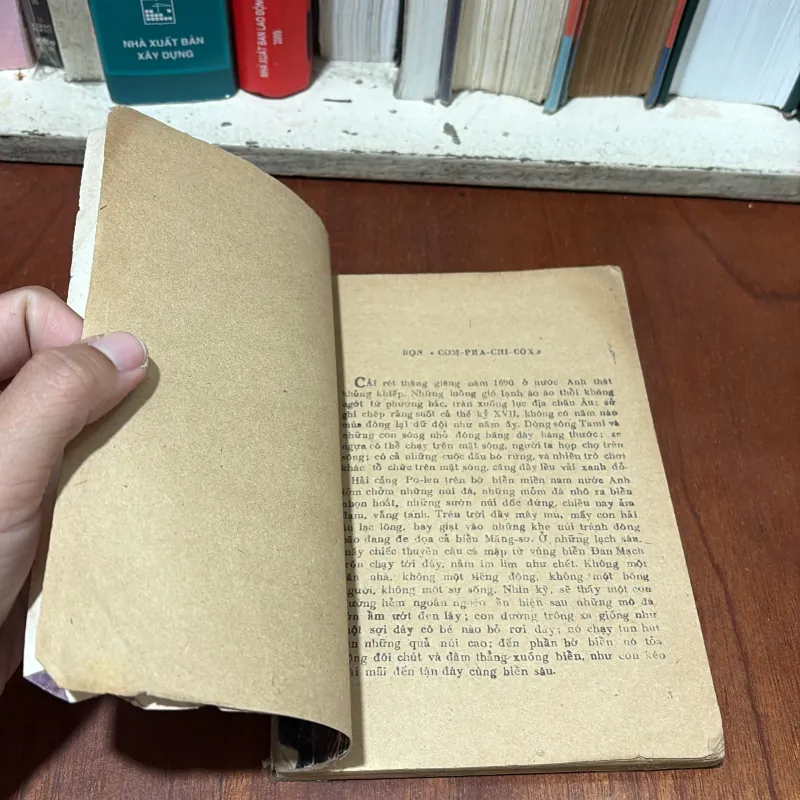 NHÀ XUẤT BẢN
XÂY DỰNG
NHÀ XUẤT BẢN LAO ĐỘNG
2009
BỌN « COM-PRA-CHI-COX »
CÁI rét tháng giêng năm 1690 ở nước Anh thật
khủng khiếp. Những luồng gió lạnh ào ào thổi không
ngớt từ phương bắc, tràn xuống lục địa châu Âu; sử
ghi chép rằng suốt cả thế kỷ XVII, không có năm nào
mùa đông lại dữ dội như năm ấy. Dòng sông Tami và
những con sông nhỏ đóng băng dày hàng thước; xe
ngựa có thể chạy trên mặt sông, người ta họp chợ trên
sông; có cả những cuộc đấu bò rừng, và nhiều trò chơi
khác tổ chức trên mặt sông, căng đầy lều vải xanh đỏ.
Hải cảng Po-len trên bờ biển miền nam nước Anh
lởm chởm những núi đá, những mỏm đá nhô ra biển
nhọn hoắt, những sườn núi dốc đứng, chiều nay ảm
đạm, vắng tanh. Trên trời đầy mây mù, mấy con hải
âu lạc lõng, bay giạt vào những khe núi tránh dông
bão đang đe dọa cả biển Măng-sơ. Ở những lạch sâu,
mấy chiếc thuyền câu cá mập từ vùng biển Đan Mạch
trốn chạy tới đây, nằm im lìm như chết. Không một
căn nhà, không một tiếng động, không một bóng
người, không một sự sống. Nhìn kỹ, sẽ thấy một con
đường hẻm ngoằn ngoèo ẩn hiện sau những mô đá
ẩm ướt đen láy; con đường trông xa giống như
một sợi dây cỏ bé nào bỏ rơi đây; nó chạy tun hút
những quả núi cao; đến phần bờ biển nó tỏa
rộng đôi chút và đâm thẳng xuống biển, như con kéo
dài mãi đến tận đáy cùng biển sâu.
3